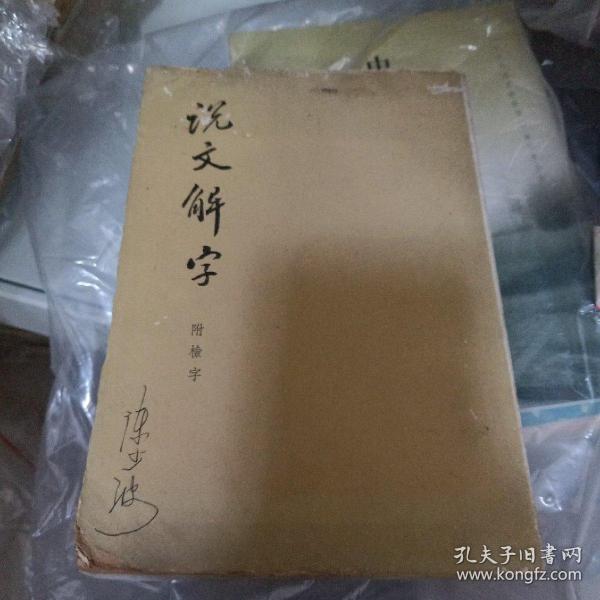 说文解字
附檢字
陈少波
中
孔夫子旧书网
www.kongfz.com